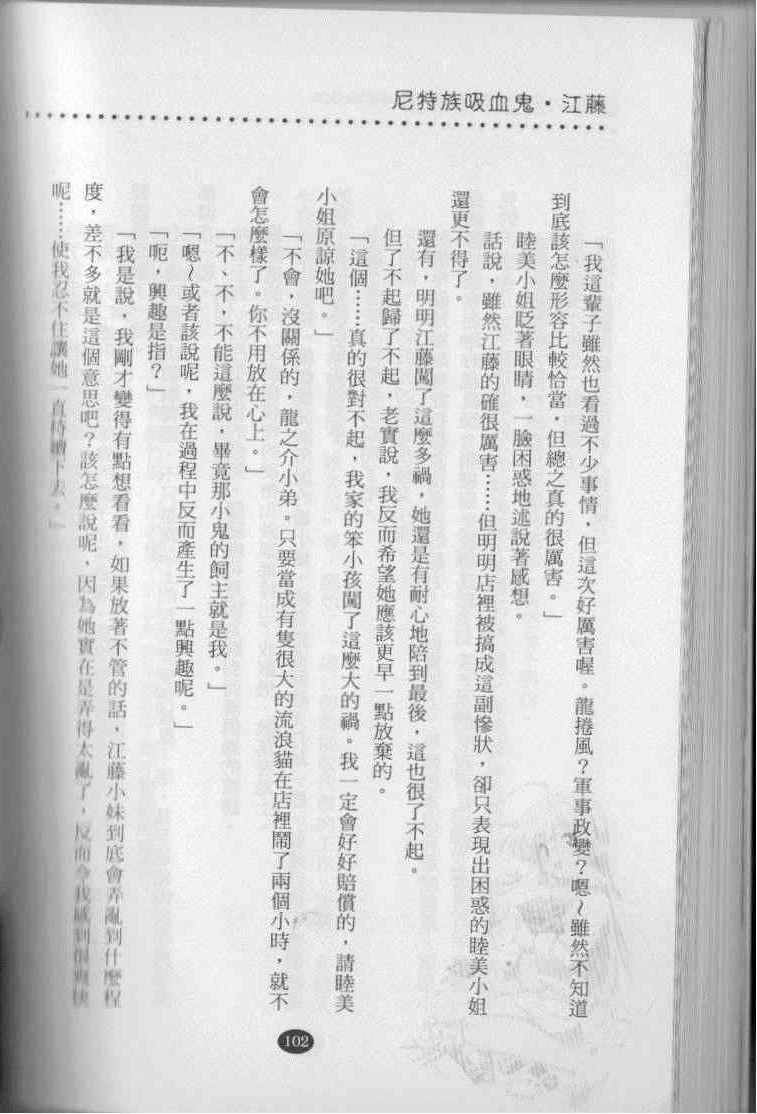 尼特族吸血鬼・江藤
「我這輩子雖然也看過不少事情，但這次好厲害喔。龍捲風？軍事政變？嗯～雖然不知道
到底該怎麼形容比較恰當，但總之真的很厲害。」
睦美小姐眨著眼睛，一臉困惑地述說著感想。
話說，雖然江藤的確很厲害……但明明店裡被搞成這副慘狀，卻只表現出困惑的睦美小姐
還更不得了。
還有，明明江藤闖了這麼多禍，她還是有耐心地陪到最後，這也很了不起。
但了不起歸了不起，老實說，我反而希望她應該更早一點放棄的。
「這個……真的很對不起，我家的笨小孩闖了這麼大的禍。我一定會好好賠償的，請睦美
小姐原諒她吧。」
「不會，沒關係的，龍之介小弟。只要當成有隻很大的流浪貓在店裡鬧了兩個小時，就不
會怎麼樣了。你不用放在心上。」
「不、不，不能這麼說，畢竟那小鬼的飼主就是我。」
「嗯～或者該說呢，我在過程中反而產生了一點興趣呢。」
「呃，興趣是指？」
「我是說，我剛才變得有點想看看，如果放著不管的話，江藤小妹到底會弄亂到什麼程
度，差不多就是這個意思吧？該怎麼說呢，因為她實在是弄得太亂了，反而令我感到很爽快
呢……使我忍不住讓她一直持續下去。」
102